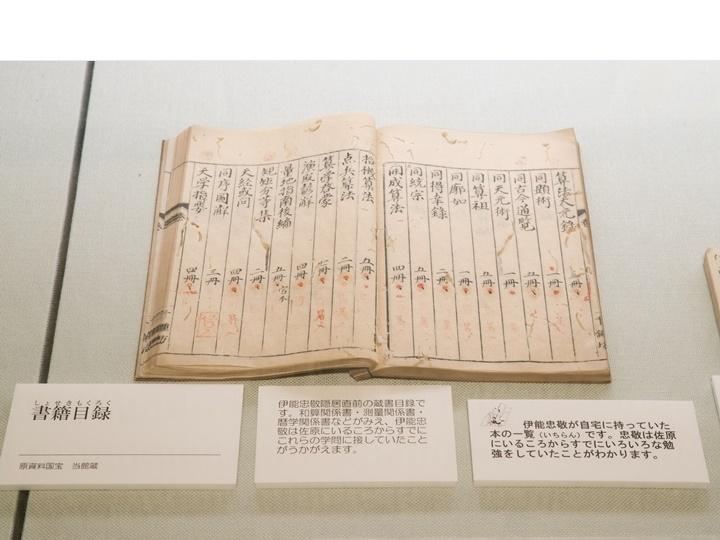 算法天元録
同題術 一冊
同古今通覧 五冊
同天元術 一冊
同算組 五冊
同廓如 一冊
同得幸録 二冊
同統宗 五冊
開成算法 四冊
算法 五冊
点兵算法 二冊
算学啓蒙 七冊
演段諺解 四冊
量地指南後編 五冊
規矩分等集 二冊
天経或問 四冊
同序図解 三冊
天学指要 四冊
しょせきもくろく
書籍目録
原資料国宝 当館蔵
伊能忠敬隠居直前の蔵書目録で
す。和算関係書・測量関係書・
暦学関係書などがみえ、伊能忠
敬は佐原にいるころからすでに
これらの学問に接していたこと
がうかがえます。
伊能忠敬が自宅に持っていた
本の一覧（いちらん）です。忠敬は佐原
にいるころからすでにいろいろな勉
強をしていたことがわかります。